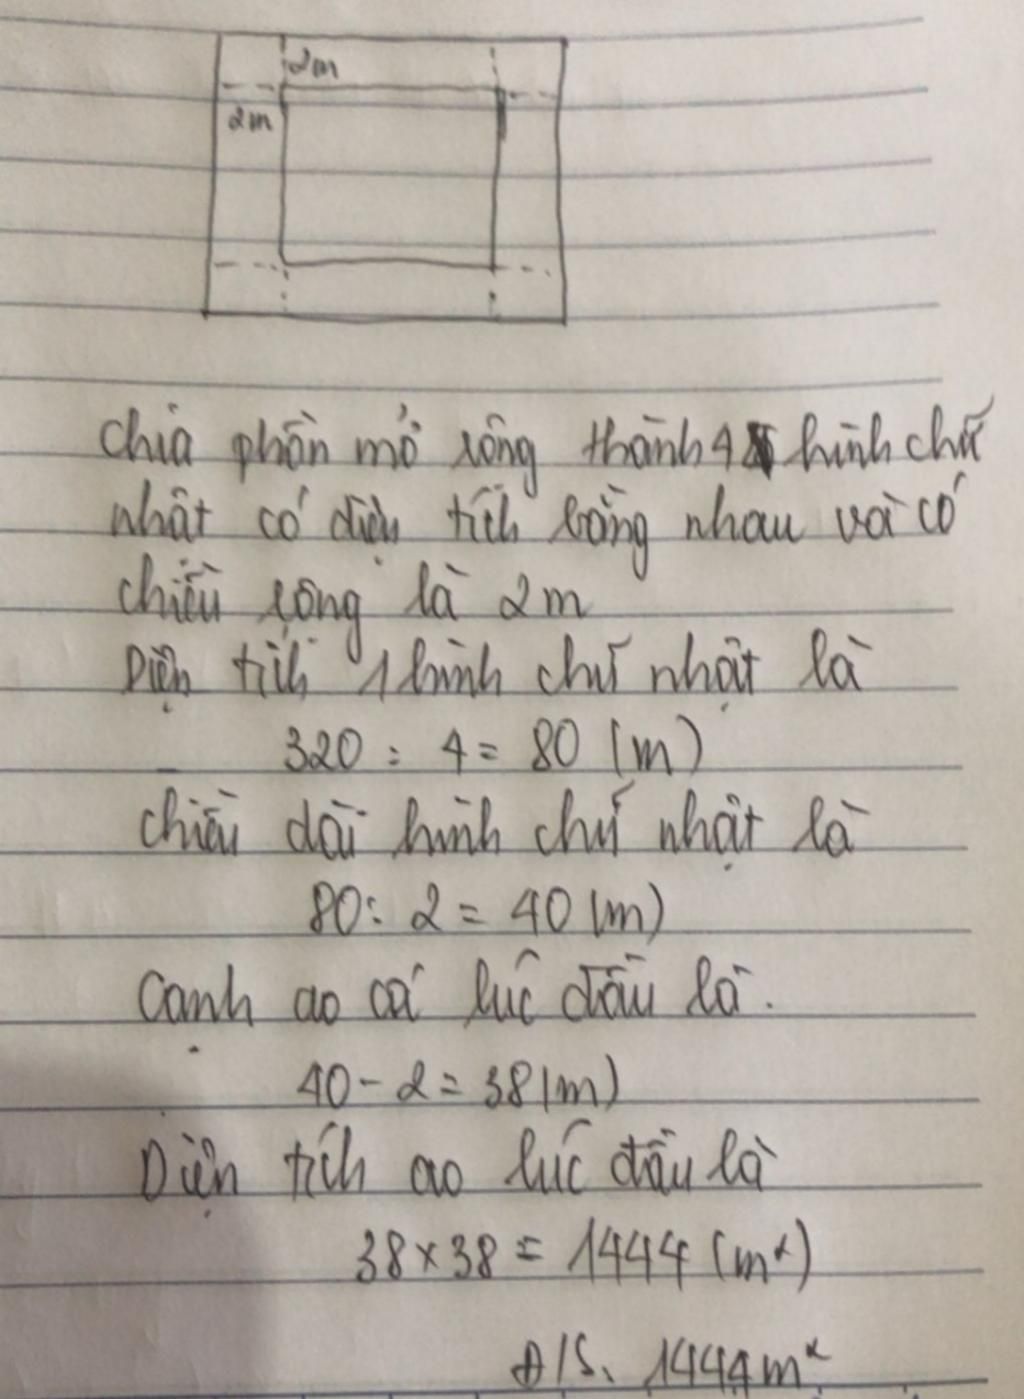 2m
2m
Chia phần mở rộng thành 4 hình chữ
nhật có diện tích bằng nhau và có
chiều rộng là 2m
Diện tích 1 hình chữ nhật là
320 : 4 = 80 (m)
chiều dài hình chữ nhật là
80 : 2 = 40 (m)
Cạnh ao cá lúc đầu là.
40 - 2 = 38 (m)
Diện tích ao lúc đầu là
38 × 38 = 1444 (m²)
Đ/S. 1444m²